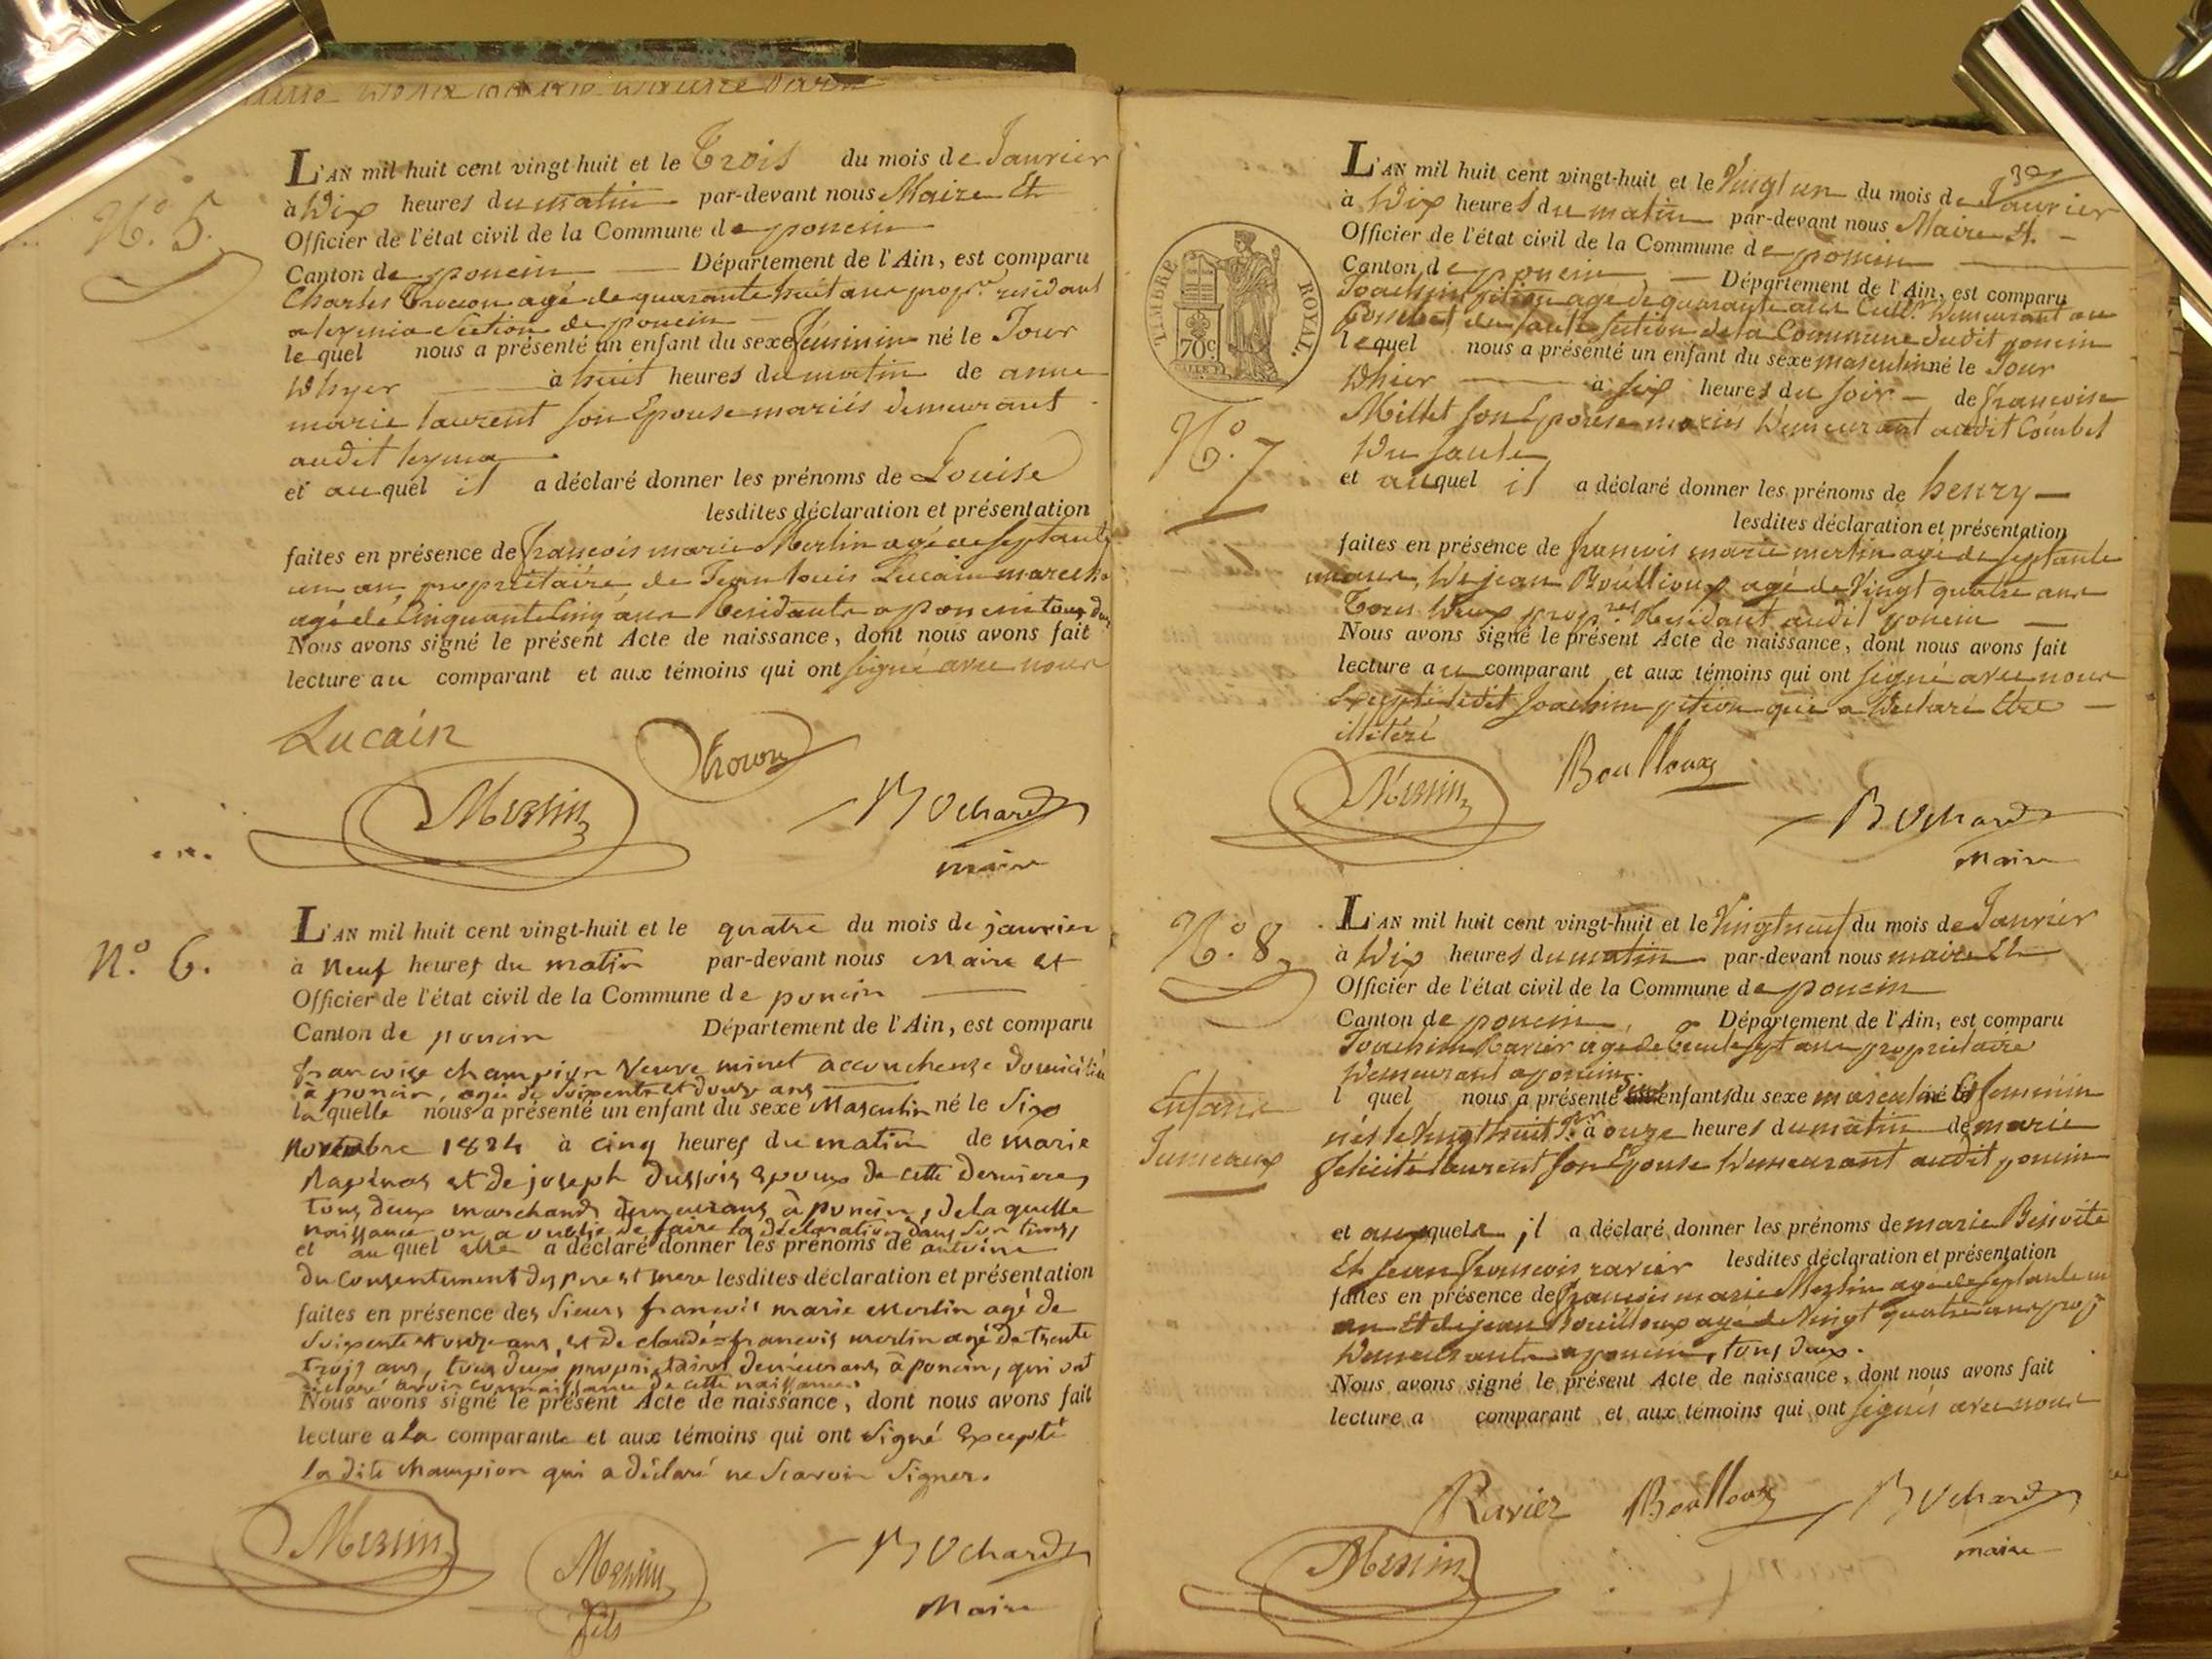 N.o 5.
L'AN mil huit cent vingt-huit et le Trois du mois de Janvier
à Dix heures du matin par-devant nous Maire Et
Officier de l'état civil de la Commune de poncin
Canton de poncin Département de l'Ain, est comparu
Charles agé de quarante huit ans prop.re residant
a leymia Section de poncin
le quel nous a présenté un enfant du sexe féminin né le Jour
Dhyer à huit heures du matin de anne
marie laurent son Epouse mariés demeurant
audit leyma
et au quel il a déclaré donner les prénoms de Louise
lesdites déclaration et présentation
faites en présence de francois marie Merlin agé de septante
un an, propriétaire de Jean louis Lucain
agé de Cinquante Cinq ans Residants a poncin tous
Nous avons signé le présent Acte de naissance, dont nous avons fait
lecture au comparant et aux témoins qui ont signé avec nous
Lucain
Merlin
Bochard
maire
N.o 6.
L'AN mil huit cent vingt-huit et le quatre du mois de janvier
à Neuf heures du matin par-devant nous Maire et
Officier de l'état civil de la Commune de poncin
Canton de poncin Département de l'Ain, est comparu
francoise champion Veuve minet accoucheuse domiciliée
à poncin, agée de soixente et douze ans
laquelle nous a présenté un enfant du sexe Masculin né le Six
Novembre 1824 à cinq heures du matin de marie
et de joseph dussois Epoux de cette derniere,
tous deux marchands demeurans à poncin, de la quelle
naissance on a oublié de faire la déclaration dans son tems,
et au quel elle a déclaré donner les prénoms de antoine
du Consentement des pere et mere lesdites déclaration et présentation
faites en présence des Sieurs francois marie Merlin agé de
soixente et onze ans, et de claude=francois merlin agé de trente
trois ans, tous deux propriétaires demeurans à poncin, qui ont
déclaré avoir connaissance de cette naissance.
Nous avons signé le présent Acte de naissance, dont nous avons fait
lecture a la comparante et aux témoins qui ont signé Excepté
la dite champion qui a déclaré ne scavoir signer.
Merlin
Merlin
fils
Bochard
Maire
TIMBRE ROYAL.
70 c.
N.o 7
L'AN mil huit cent vingt-huit et le Vingt un du mois de Janvier
à Dix heures du matin par-devant nous Maire Et
Officier de l'état civil de la Commune de poncin
Canton de poncin Département de l'Ain, est comparu
Joachim pition agé de quarante ans Cult.r Demeurant au
Combet du saule section de la Commune dudit poncin
lequel nous a présenté un enfant du sexe masculin né le Jour
Dhier à six heures du soir de francoise
Millet son Epouse mariés Demeurant audit Combet
Du saule
et auquel il a déclaré donner les prénoms de henry
lesdites déclaration et présentation
faites en présence de francois marie merlin agé de septante
un ans, De jean Boullioux agé de Vingt quatre ans
Tous Deux prop.res Residant audit poncin
Nous avons signé le présent Acte de naissance, dont nous avons fait
lecture au comparant et aux témoins qui ont signé avec nous
Excepté ledit Joachim pition qui a Declaré Etre
illétéré
Merlin
Boulloux
Bochard
Maire
N.o 8
Enfans
Jumeaux
L'AN mil huit cent vingt-huit et le Vingt neuf du mois de Janvier
à Dix heures du matin par-devant nous maire Et
Officier de l'état civil de la Commune de poncin
Canton de poncin, Département de l'Ain, est comparu
Joachim Ravier agé de trente sept ans propriétaire
Demeurant a poncin
l quel nous a présenté deux enfants du sexe masculin et feminin
nés le Vingt huit à onze heures du matin de marie
felicité laurent son Epouse Demeurant audit poncin
et auxquels il a déclaré donner les prénoms de marie Benoite
Et jean francois ravier lesdites déclaration et présentation
faites en présence de francois marie Merlin agé de septante un
an Et de jean Bouillioux agé de Vingt quatre ans prop
Demeurants a poncin, tous deux.
Nous avons signé le présent Acte de naissance, dont nous avons fait
lecture a comparant et aux témoins qui ont signés avec nous
Ravier
Boulloux
Bochard
maire
Merlin